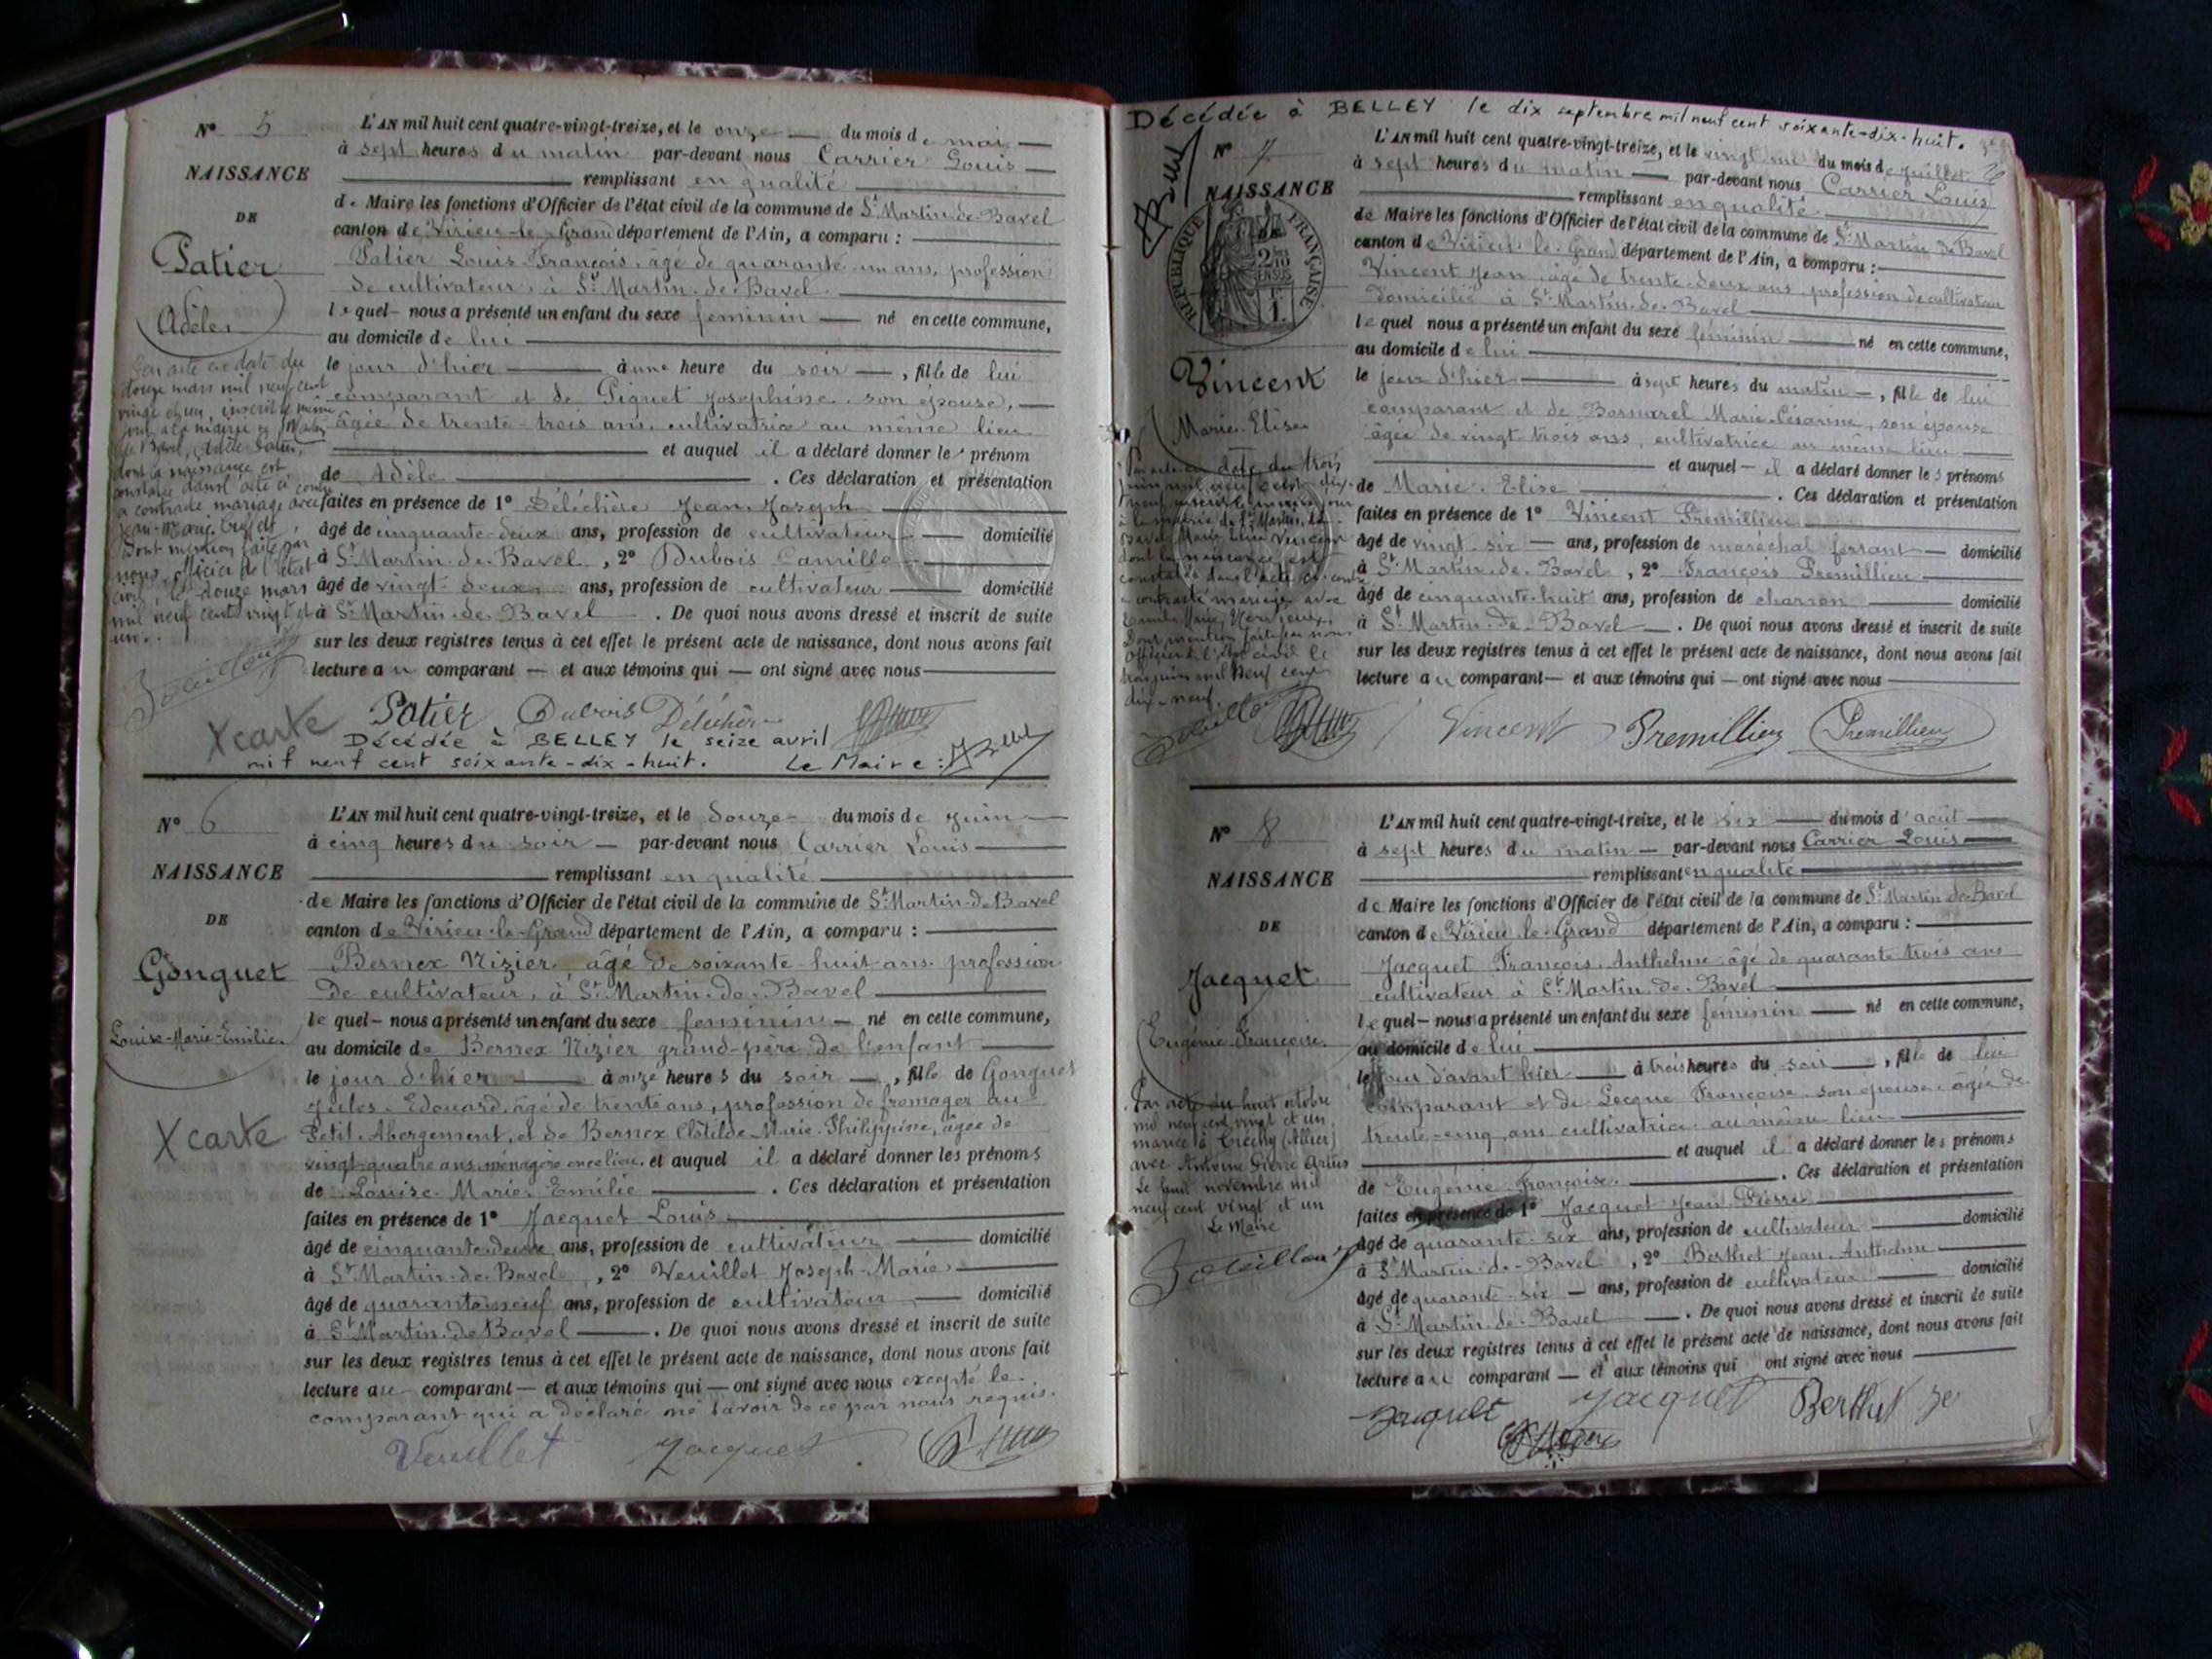 N° 5
NAISSANCE
DE
Patier
Adèle
L'AN mil huit cent quatre-vingt-treize, et le onze du mois de mai
à sept heures du matin par-devant nous Carrier Louis
remplissant en qualité
de Maire les fonctions d'Officier de l'état civil de la commune de St Martin de Bavel
canton de Virieu-le-Grand département de l'Ain, a comparu :
Patier Louis François, âgé de quarante un ans, profession
de cultivateur, à St Martin de Bavel
lequel nous a présenté un enfant du sexe féminin né en cette commune,
au domicile de lui
le jour d'hier à une heure du soir, fille de lui
comparant et de Piquet Josephine son épouse,
âgée de trente-trois ans, cultivatrice au même lieu
et auquel il a déclaré donner le prénom
de Adèle. Ces déclaration et présentation
faites en présence de 1° Déléchère Jean Joseph
âgé de cinquante-deux ans, profession de cultivateur domicilié
à St Martin de Bavel, 2° Dubois Camille
âgé de vingt-deux ans, profession de cultivateur domicilié
à St Martin de Bavel. De quoi nous avons dressé et inscrit de suite
sur les deux registres tenus à cet effet le présent acte de naissance, dont nous avons fait
lecture au comparant et aux témoins qui ont signé avec nous
Par acte en date du
douze mars mil neuf cent
vingt et un, inscrit le même
jour à la mairie de St Martin
de Bavel, Adèle Patier,
dont la naissance est
constatée dans l'acte ci contre
a contracté mariage avec
Jean-Marie
Dont mention faite par
nous, officier de l'état
civil le douze mars
mil neuf cent vingt et
un.
Patier Dubois Déléchère
X carte
Décédée à BELLEY le seize avril
mil neuf cent soixante-dix-huit. Le Maire :
N° 6
NAISSANCE
DE
Gonguet
Louise-Marie-Emilie
X carte
L'AN mil huit cent quatre-vingt-treize, et le douze du mois de juin
à cinq heures du soir par-devant nous Carrier Louis
remplissant en qualité
de Maire les fonctions d'Officier de l'état civil de la commune de St Martin de Bavel
canton de Virieu-le-Grand département de l'Ain, a comparu :
Bernex Nizier, âgé de soixante-huit ans, profession
de cultivateur, à St Martin de Bavel
lequel nous a présenté un enfant du sexe féminin né en cette commune,
au domicile de Bernex Nizier grand-père de l'enfant
le jour d'hier à onze heures du soir, fille de Gonguet
Jules-Edouard, âgé de trente ans, profession de fromager au
Petit Abergement, et de Bernex Clotilde-Marie-Philippine, âgée de
vingt-quatre ans, ménagère en ce lieu. et auquel il a déclaré donner les prénoms
de Louise Marie Emilie. Ces déclaration et présentation
faites en présence de 1° Jacquet Louis
âgé de cinquante-deux ans, profession de cultivateur domicilié
à St Martin de Bavel, 2° Veuillet Joseph-Marie
âgé de quarante-neuf ans, profession de cultivateur domicilié
à St Martin de Bavel. De quoi nous avons dressé et inscrit de suite
sur les deux registres tenus à cet effet le présent acte de naissance, dont nous avons fait
lecture au comparant et aux témoins qui ont signé avec nous excepté le
comparant qui a déclaré ne savoir de ce par nous requis.
Veuillet Jacquet
Décédée à BELLEY le dix septembre mil neuf cent soixante-dix-huit.
N° 7
NAISSANCE
RÉPUBLIQUE FRANÇAISE
2/10 EN SUS
Vincent
Marie-Elise
L'AN mil huit cent quatre-vingt-treize, et le vingt un du mois de juillet
à sept heures du matin par-devant nous Carrier Louis
remplissant en qualité
de Maire les fonctions d'Officier de l'état civil de la commune de St Martin de Bavel
canton de Virieu-le-Grand département de l'Ain, a comparu :
Vincent Jean, âgé de trente-deux ans, profession de cultivateur
domicilié à St Martin de Bavel
lequel nous a présenté un enfant du sexe féminin né en cette commune,
au domicile de lui
le jour d'hier à sept heures du matin, fille de lui
comparant et de Bornarel Marie-Césarine, son épouse
âgée de vingt-trois ans, cultivatrice au même lieu
et auquel il a déclaré donner les prénoms
de Marie-Elise. Ces déclaration et présentation
faites en présence de 1° Vincent Premillieu
âgé de vingt-six ans, profession de maréchal ferrant domicilié
à St Martin de Bavel, 2° François Premillieu
âgé de cinquante-huit ans, profession de charron domicilié
à St Martin de Bavel. De quoi nous avons dressé et inscrit de suite
sur les deux registres tenus à cet effet le présent acte de naissance, dont nous avons fait
lecture au comparant et aux témoins qui ont signé avec nous
Par acte en date du trois
juin mil neuf cent dix-
neuf, inscrit le même jour
à la mairie de St Martin de
Bavel Marie Elise Vincent
dont la naissance est
constatée dans l'acte ci contre
a contracté mariage avec
Dont mention faite par nous
officier de l'état civil le
trois juin mil neuf cent
dix-neuf.
Vincent Premillieu Premillieu
N° 8
NAISSANCE
DE
Jacquet
Eugénie Françoise
L'AN mil huit cent quatre-vingt-treize, et le six du mois d'août
à sept heures du matin par-devant nous Carrier Louis
remplissant en qualité
de Maire les fonctions d'Officier de l'état civil de la commune de St Martin de Bavel
canton de Virieu-le-Grand département de l'Ain, a comparu :
Jacquet François Anthelme, âgé de quarante-trois ans
cultivateur à St Martin de Bavel
lequel nous a présenté un enfant du sexe féminin né en cette commune,
au domicile de lui
le jour d'avant hier à trois heures du soir, fille de lui
comparant et de Lecque Françoise son épouse, âgée de
trente-cinq ans cultivatrice au même lieu
et auquel il a déclaré donner les prénoms
de Eugénie Françoise. Ces déclaration et présentation
faites en présence de 1° Jacquet Jean Pierre
âgé de quarante-six ans, profession de cultivateur domicilié
à St Martin de Bavel, 2° Berthet Jean Anthelme
âgé de quarante-six ans, profession de cultivateur domicilié
à St Martin de Bavel. De quoi nous avons dressé et inscrit de suite
sur les deux registres tenus à cet effet le présent acte de naissance, dont nous avons fait
lecture au comparant et aux témoins qui ont signé avec nous
Par acte du huit octobre
mil neuf cent vingt et un,
mariée à Créchy (Allier)
avec Antoine Pierre Artus
Le huit novembre mil
neuf cent vingt et un
Le Maire
Jacquet Jacquet Berthet